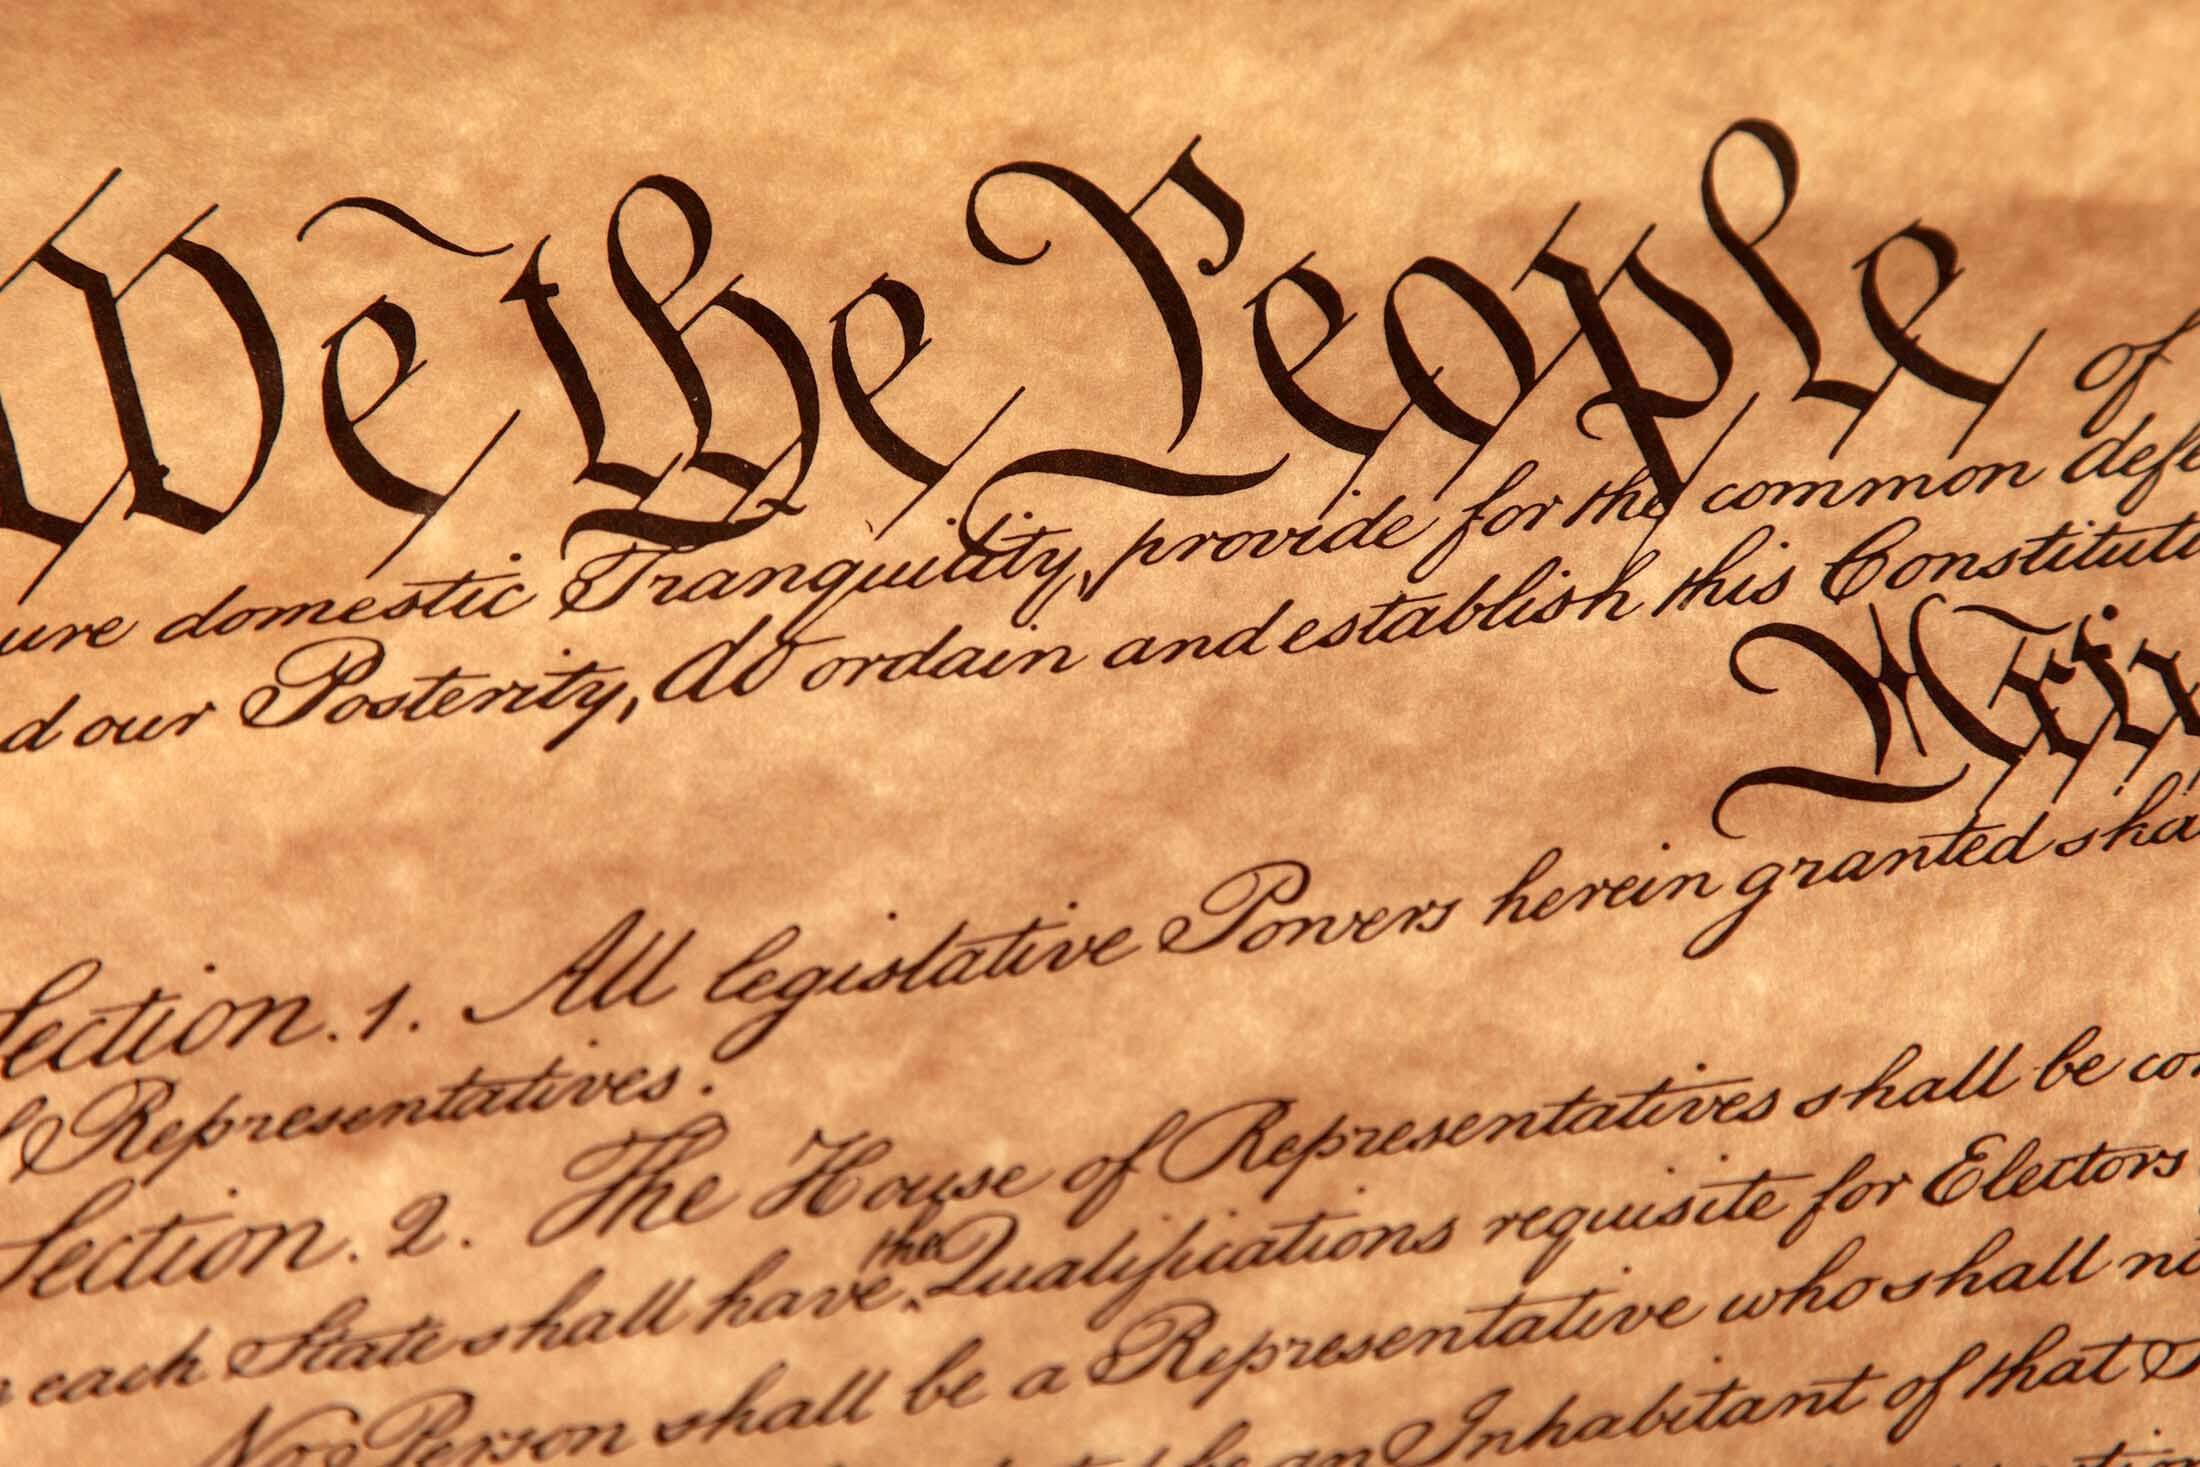 We the People of
ure domestic Tranquility, provide for the common defe
d our Posterity, do ordain and establish this Constituti
Artic
Section. 1. All legislative Powers herein granted sha
f Representatives.
Section. 2. The House of Representatives shall be co
each State shall have the Qualifications requisite for Electors
No Person shall be a Representative who shall no
be an Inhabitant of that